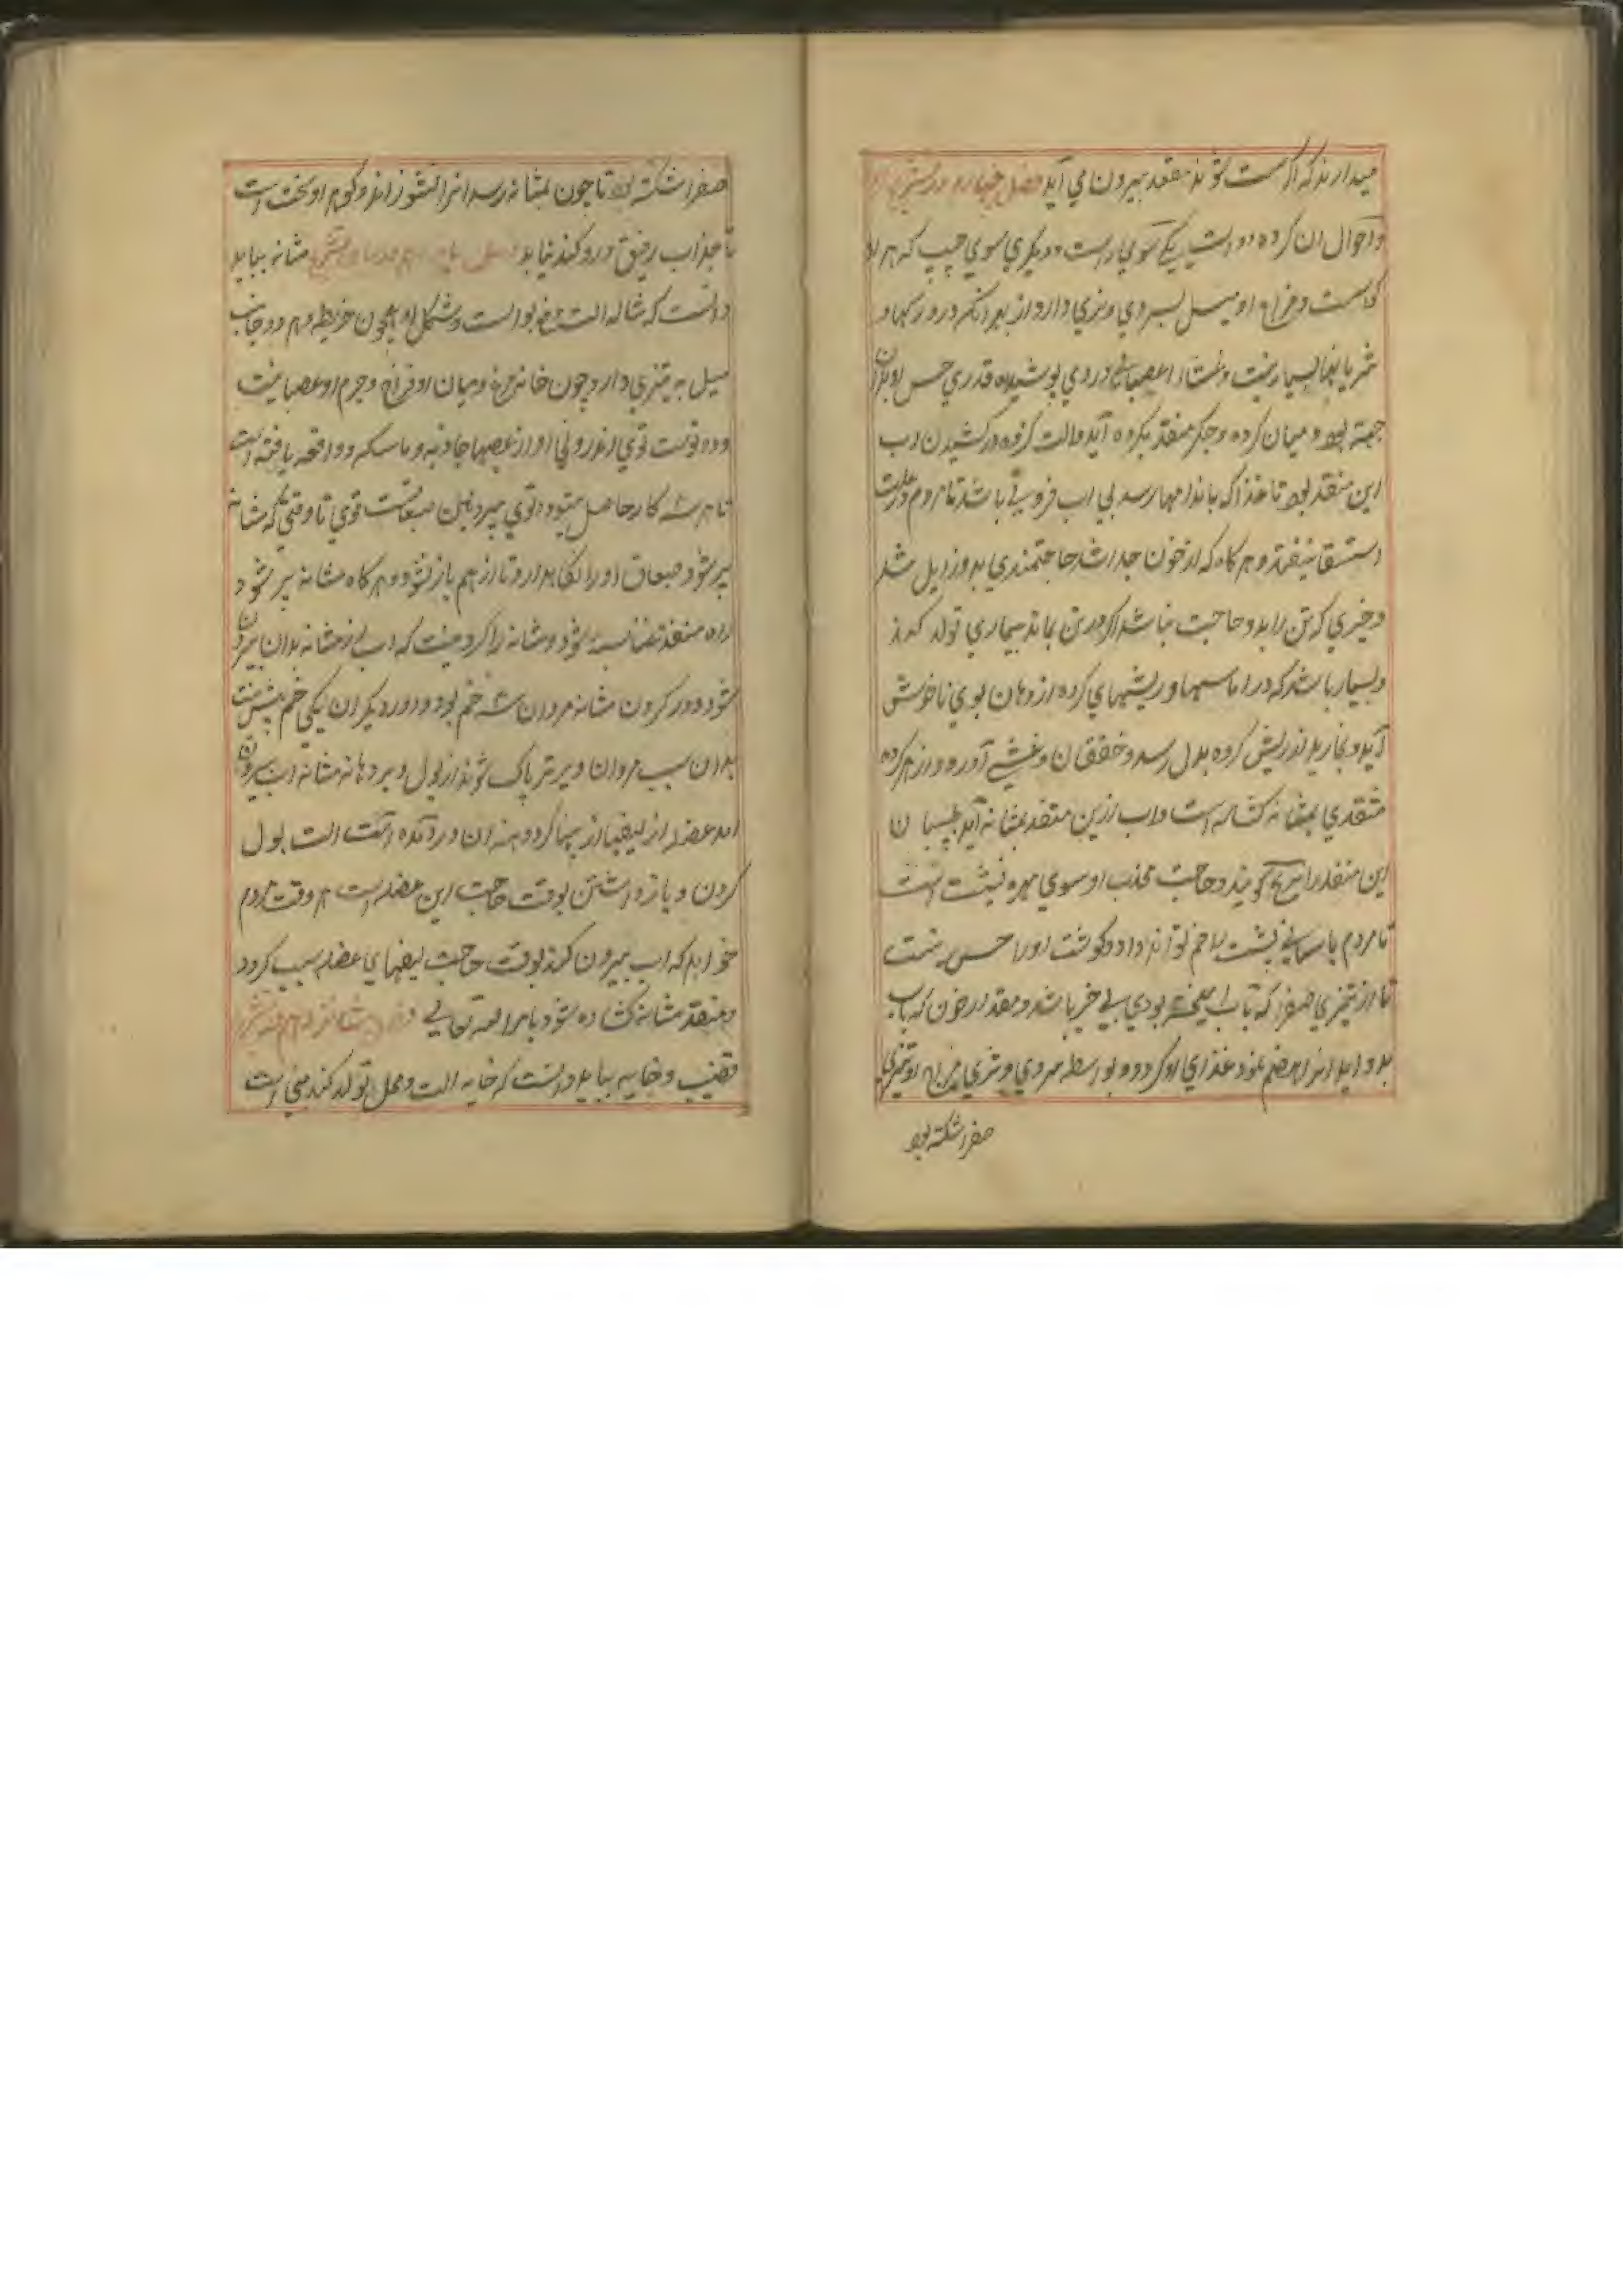 میدارند که اگر سست شوند مقعد بیرون می آید فصل چهاردهم در تشریح
و احوال ان کرده دو است یکی سوی راست و دیگری سوی چپ که هر دو
و مزاج او میل بسردی و تری دارد از بهر انکه درو رکها و
شریانها بسیار نیست و غشاء عصبانی در وی پوشیده قدری حس او بدان
جهته بود و میان کرده و جکر منفذ بکرده آید و الت کرده در کشیدن اب
این منفذ بود تا غذا که باندامها رسد بی اب فزونی باشد تا مردم در علت
استسقا نیفتد و هر کاه که از خون جدا شد حاجتمندی بدو زایل شد
و چیزی که تن را بدو حاجت نباشد اکر در تن بماند بیماری تولد کند
و بسیار باشد که در اماسها و ریشهای کرده از دهان بوی ناخوش
آید و بخار بد از ریش کرده بدل رسد و خفقان و غشی آورد و از هر کرده
منفذی بمثانه کشاده است و اب ازین منفذ بمثانه آید
این منفذ را کویند و جانب محدب او سوی مهره پشت است
تا مردم باسانی پشت را خم تواند داد و کوشت او را حس نیست
تا از تیزی صفرا که با اب آمیخته بودی بی خبر باشد و مقدار خون که با اب
بدو اید انرا هضم کند و غذای او کردد و بواسطه سردی و تری مزاج او تیزی
صفرا شکته بود
صفرا شکته بود تا چون بمثانه رسد انرا نسوزاند و کوهر او سخت است
تا جذاب رقیق درو کند نیاید فصل پانزدهم در تشریح مثانه بباید
دانست که مثانه الت بول است و شکل او همچون خریطه و هر دو جانب
میل به تیزی دارد چون خایه مرغ و میان او فراخ و جرم او عصبانیست
و دو توست توی اندرونی او از عصبها جاذبه و ماسکه و دافعه یافته است
تا هر سه کار حاصل شود و توی بیرونین صفاقست قوی تا وقتی که مثانه
پر شود صفاق او را نکاه دارد تا از هم باز نشود و هر کاه مثانه پر شود
راه منفذ بسته شود و مثانه را کردنیست که اب از مثانه بدان بیرون
شود و در کردن مثانه مردان سه خم بود و در دیکران یکی خم بیش نیست
بدان سبب مردان دیرتر پاک شوند از بول و بر دهانه مثانه اب بیرون
اید عضله از لیفها از پهنا کرد دهنه ان در آمده است الت بول
کردن و باز داشتن بوقت حاجت این عضله است هر وقت مردم
خواهد که اب بیرون کند بوقت حاجت لیفهای عضله سبب کردد
و منفذ مثانه کشاده شود بامر الله تعالی فصل شانزدهم در تشریح
قضیب و خایه بباید دانست که خایه الت و محل تولد کند منی است